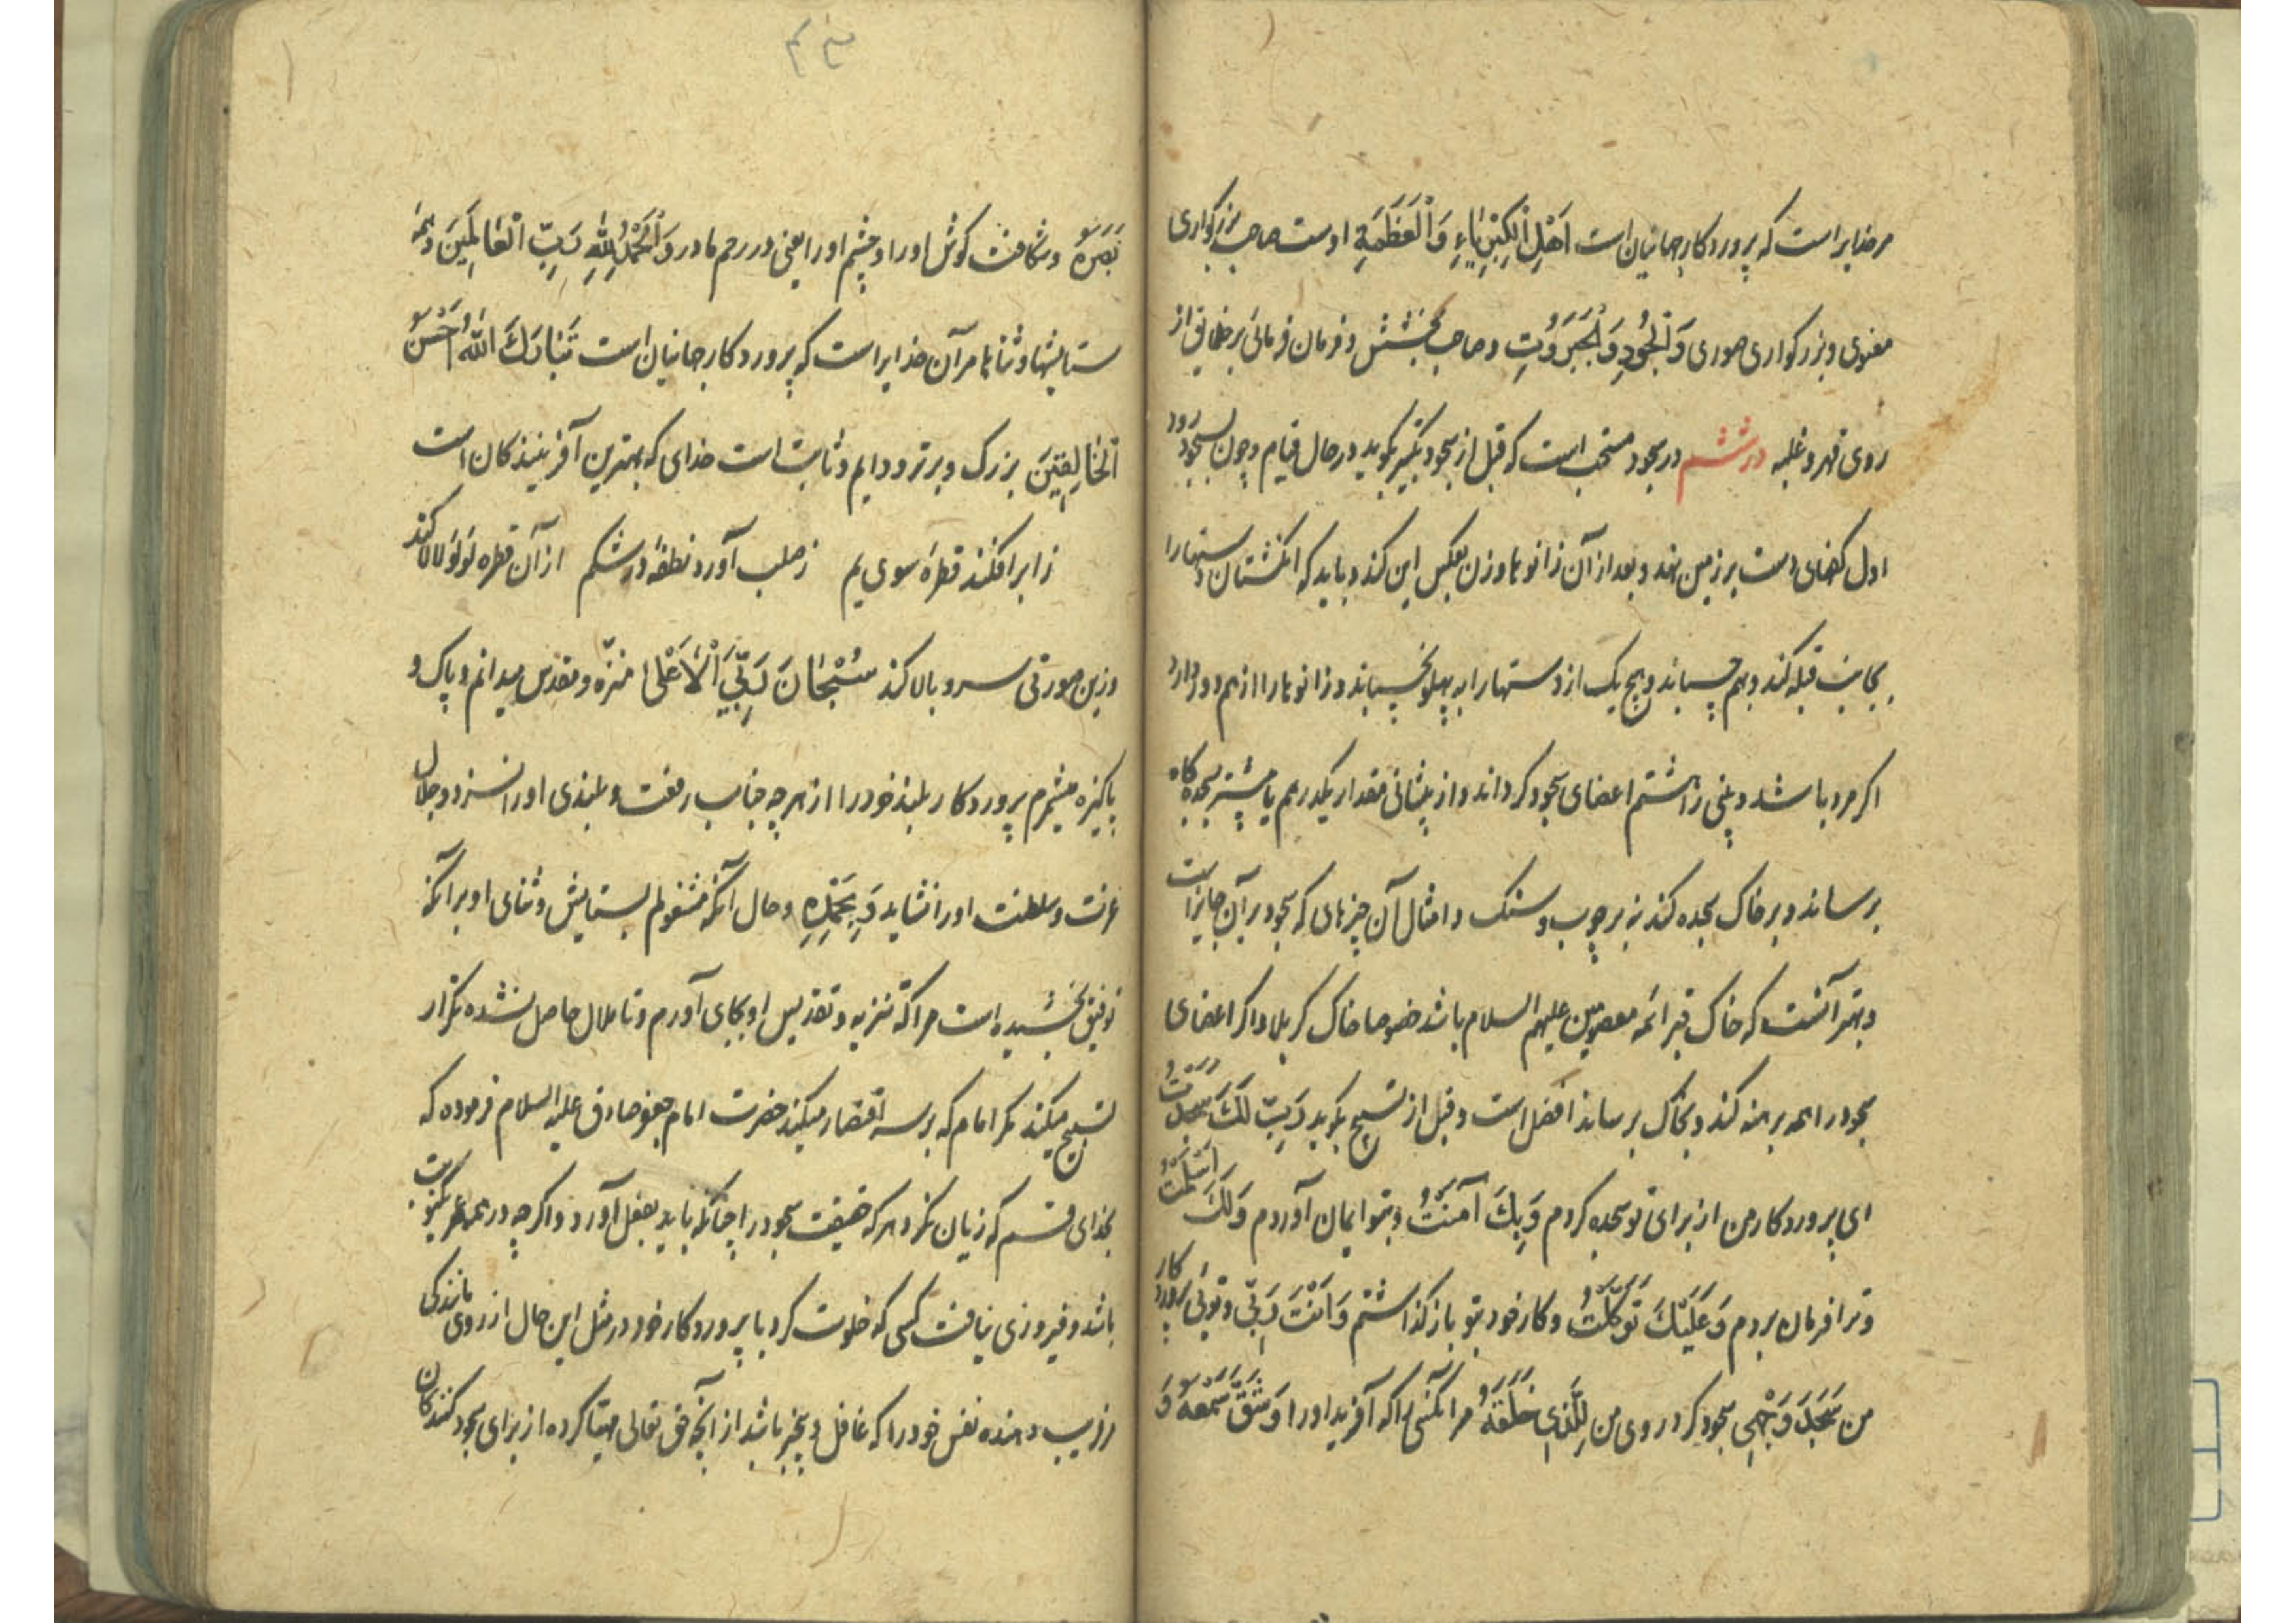 مرخدایراست که پروردکار جهانیان است اَهْلِ الْکِبْرِیَاءِ وَ الْعَظَمَةِ اوست صاحب بزرکواری
معنوی و بزرکواری صوری وَ الْجُودِ وَ الْجَبَرُوتِ و صاحب بخشش و فرمان فرمائی بر خلایق از
روی قهر و غلبه در ششم در سجود مستحب است که قبل از سجود تکبیر بکوید در حال قیام و چون بسجود رود
اول کفهای دست بر زمین نهد و بعد از آن زانوها و زن بعکس این کند و باید که انکشتان دستها را
بجانب قبله کند و بهم چسباند و هیچ یک از دستها را به پهلو نچسباند و زانوها را از هم دور دارد
اکر مرد باشد و بینی را هشتم اعضای سجود کرداند و از پیشانی مقدار یکدرهم یا بیشتر بسجده کاه
برساند و بر خاک سجده کند نه بر چوب و سنک و امثال آن چیزهای که سجود بر آن جایز است
و بهتر آنست که خاک قبر ائمه معصومین علیهم السلام باشد خصوصا خاک کربلا و اکر اعضای
سجود را همه برهنه کند و بخاک برساند افضل است و قبل از تسبیح بکوید رَبِّ لَکَ سَجَدْتُ
ای پروردکار من از برای تو سجده کردم وَ بِکَ آمَنْتُ و بتو ایمان آوردم وَ لَکَ اَسْلَمْتُ
و ترا فرمان بردم وَ عَلَیْکَ تَوَکَّلْتُ و کار خود بتو باز کذاشتم وَ اَنْتَ رَبِّی و توئی پرورد کار
من سَجَدَ وَجْهِی سجود کرد روی من لِلَّذِی خَلَقَهُ مر آنکسی را که آفرید او را وَ شَقَّ سَمْعَهُ وَ
بَصَرَهُ و شکافت کوش او را و چشم او را یعنی در رحم مادر وَ الْحَمْدُ لِلّٰهِ رَبِّ الْعَالَمِینَ و همه
ستایشها و ثناها مر آن خدایراست که پروردکار جهانیان است تَبَارَکَ اللّٰهُ اَحْسَنُ
الْخَالِقِینَ بزرک و برتر و دایم و ثابت است خدای که بهترین آفرینندکان است
ز ابر افکند قطره سوی یم ز صلب آورد نطفه در شکم از آن قطره لولو لالا کند
وزین صورتی سرو بالا کند سُبْحَانَ رَبِّیَ الْاَعْلٰی منزّه و مقدس میدانم و پاک و
پاکیزه میشمرم پروردکار بلند خود را از هر چه جناب رفعت و بلندی او را نسزد و جلال
عزت و سلطنت او را نشاید وَ بِحَمْدِهِ و حال آنکه مشغولم بستایش و ثنای او بر آنکه
توفیق بخشیده است مرا که تنزیه و تقدیس او بجای آورم و تا ملال حاصل نشده تکرار
تسبیح میکند مکر امام که بر سه اقتصار میکند حضرت امام جعفر صادق علیه السلام فرموده که
بخدای قسم که زیان نکرد هر که حقیقت سجود را چنانکه باید بفعل آورد و اکر چه در همه عمر یکنوبت
باشد و فیروزی نیافت کسی که خلوت کرد با پروردکار خود در مثل این حال از روی مانندکی
فریب دهنده نفس خود را که غافل و بیخبر باشد از آنچه حق تعالی مهیّا کرده از برای سجود کنندکان